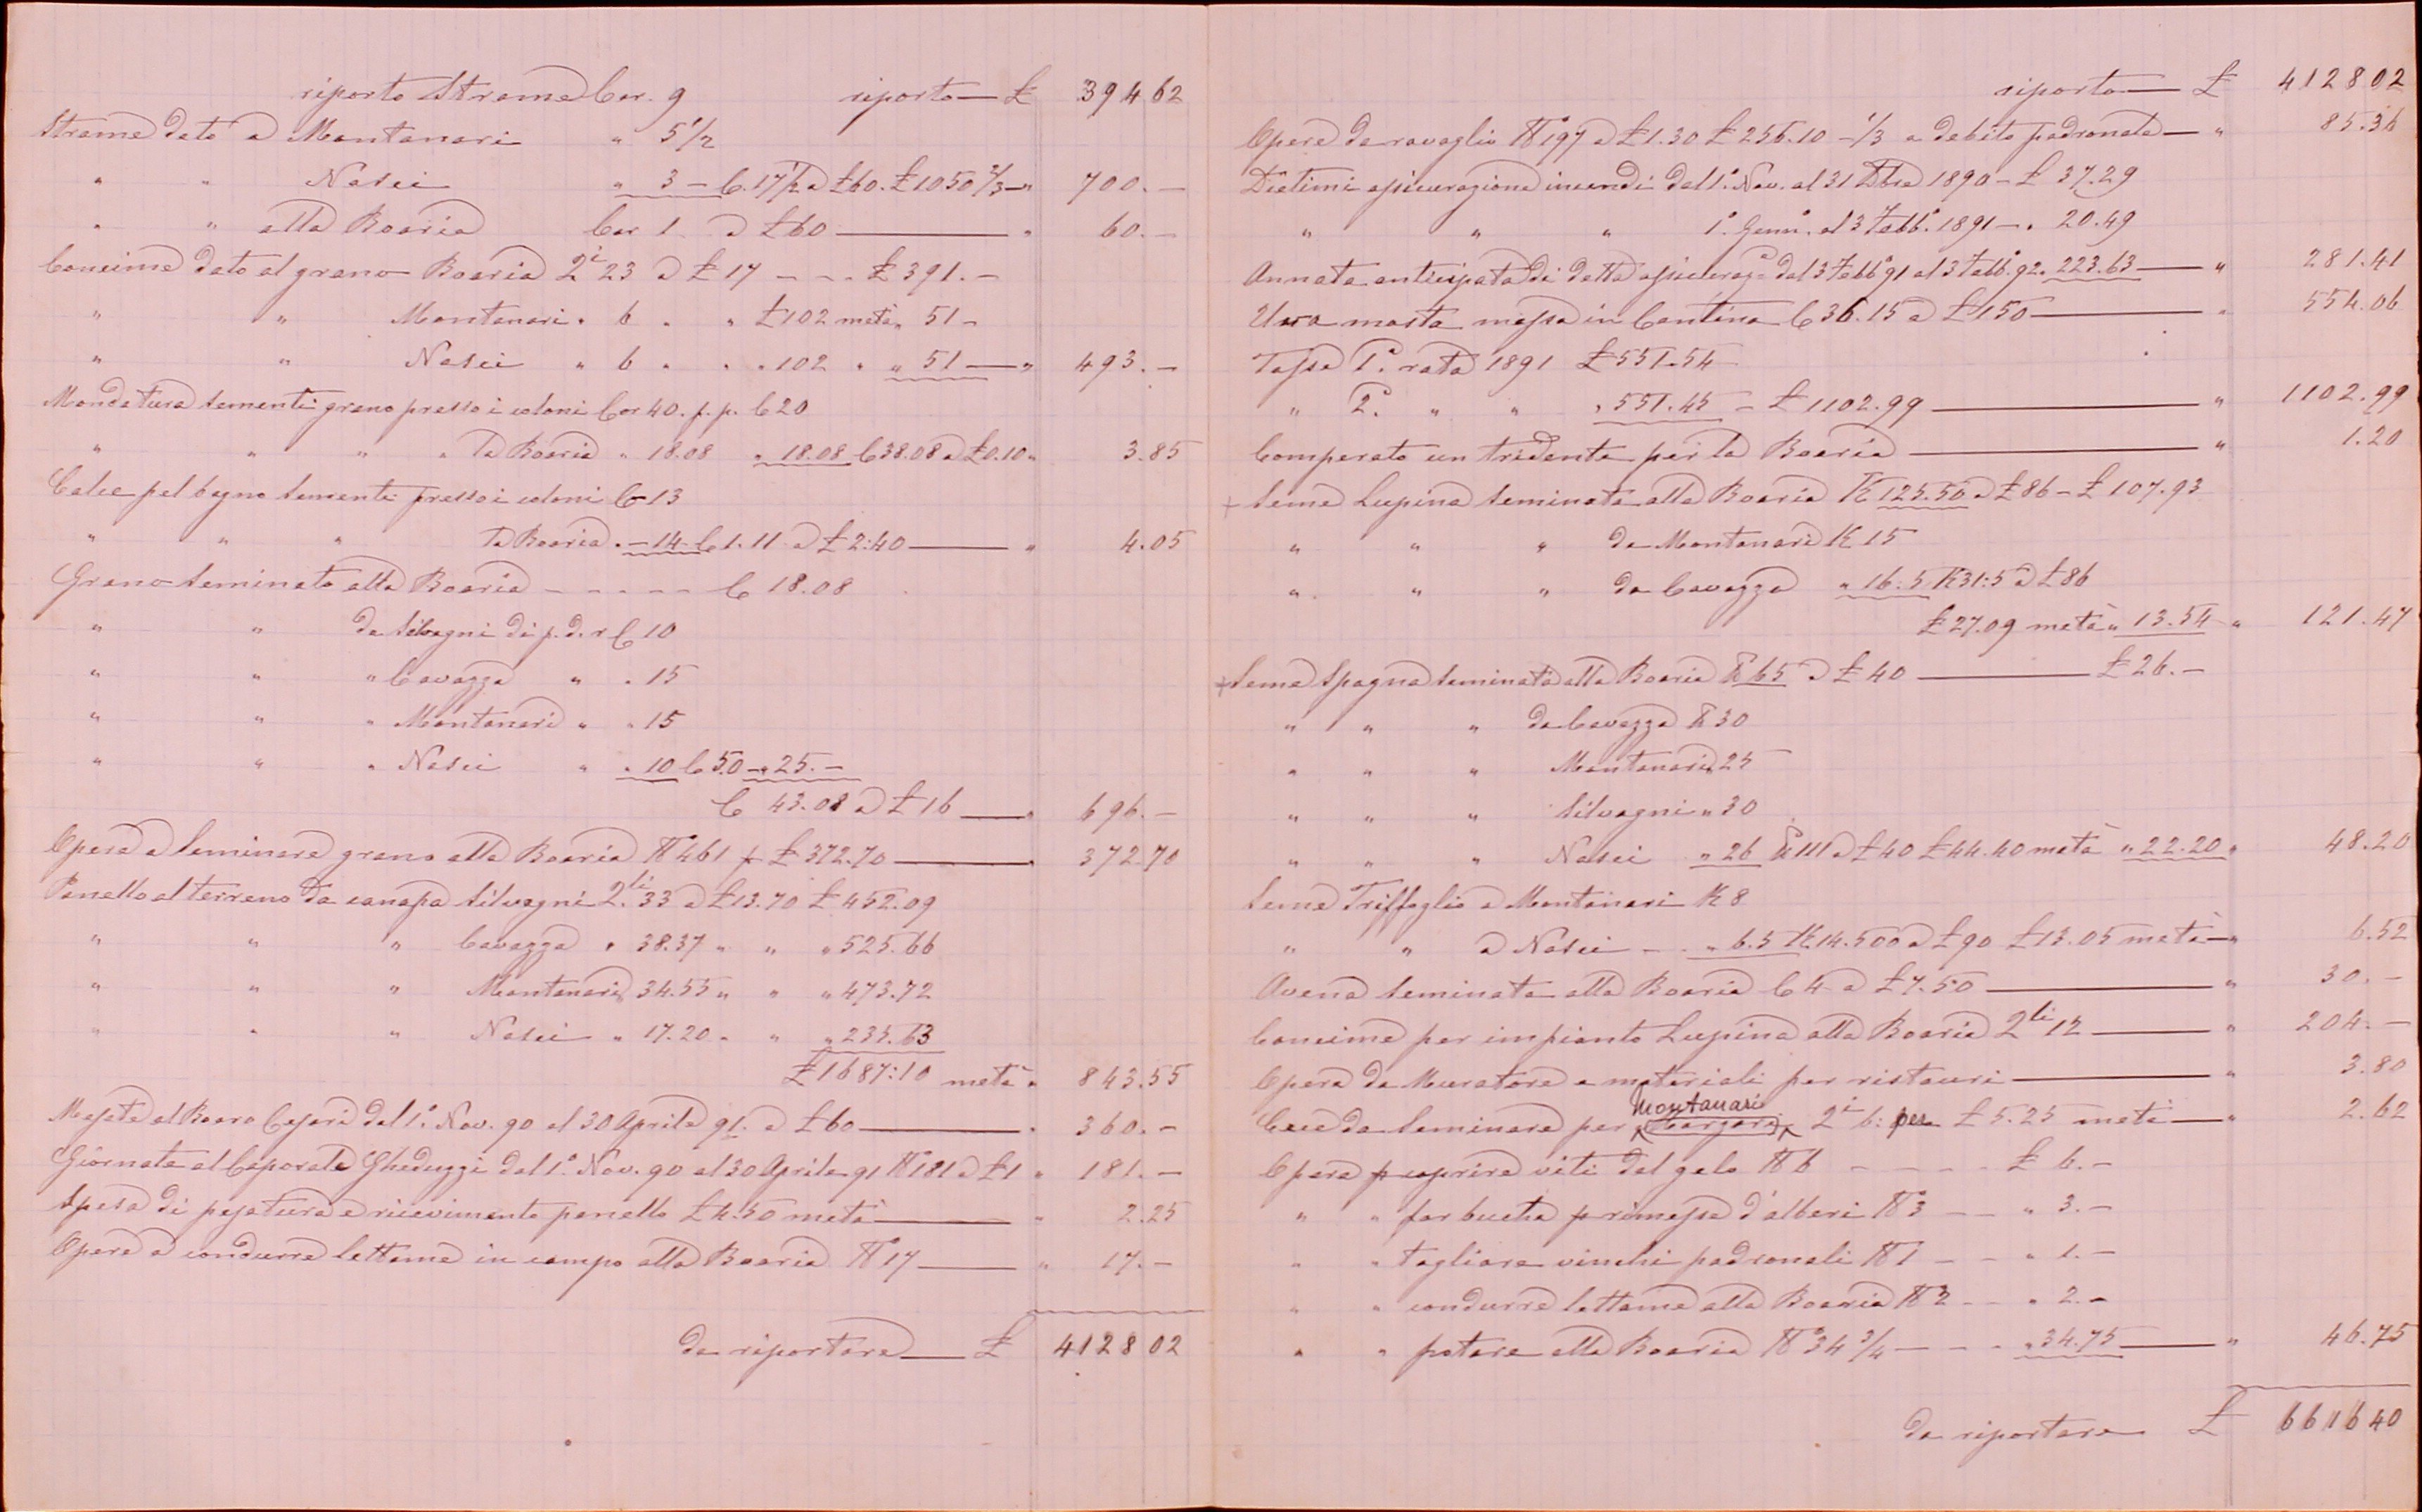 riporto Strame Car. 9 riporto — £ 394 62
Strame dato a Montanari " 5 1/2
" " Nasci " 3 — C. 17 1/2 a £ 60. £ 1050 2/3 — " 700. —
" " alla Boaria Car 1 a £ 60 — " 60. —
Concime dato al grano Boaria Qⁱ 23 a £ 17 - - - £ 391. —
" " Montanari " 6 " " £ 102 metà " 51 —
" " Nasci " 6 " " " 102 " " 51 — " 493. —
Mondatura sementi grano presso i coloni Cor 40. p. p. C 20
" " " " la Boaria " 18.08 " 18.08 C 38.08 a £ 0.10 " 3.85
Calce pel bagno sementi presso i coloni C 13
" " " la Boaria " — 14 — C 1. 11 a £ 2:40 — " 4.05
Grano seminato alla Boaria - - - - - C 18.08
" " da Silvagni di p. d. r C 10
" " " Cavazza " " 15
" " " Montanari " " 15
" " " Nasci " " 10 C 50 — " 25. —
C 43.08 a £ 16 — " 696. —
Opere a seminare grano alla Boaria N° 461 p £ 372.70 — " 372.70
Panello al terreno da canapa Silvagni Qˡⁱ 33 a £ 13.70 £ 452.09
" " " Cavazza " 38.37 " " " 525.66
" " " Montanari " 34.55 " " " 473.72
" " " Nasci " 17.20 " " " 235.63
£ 1687:10 metà " 843.55
Mesate al Boaro Cesari dal 1° Nov. 90 al 30 Aprile 91. a £ 60 — " 360. —
Giornate al Caporale Gheduzzi dal 1° Nov. 90 al 30 Aprile 91 N° 181 a £ 1 " 181. —
Spesa di pesatura e ricevimento panello £ 4.50 metà — " 2.25
Opere a condurre lettame in campo alla Boaria N° 17 — " 17. —
da riportare — £ 4128 02
riporto — £ 4128 02
Opere da ravaglio N° 197 a £ 1.30 £ 256.10 — 1/3 a debito padronale — " 85.36
Dietimi assicurazione incendi dal 1° Nov. al 31 Xbre 1890 — £ 37.29
" " " 1° Genn° al 3 Febb° 1891 — " 20.49
Annata anticipata di detta assicuraz° dal 3 Febb° 91 al 3 Febb° 92 " 223.63 — " 281.41
Uva mosta messa in Cantina C 36.15 a £ 150 — " 554.06
Tassa 1ª rata 1891 £ 551.54
" 2ª " " " 551.45 — £ 1102.99 — " 1102.99
Comperato un tridente per la Boaria — " 1.20
+ Seme Lupina seminata alla Boaria K 125.50 a £ 86 — £ 107.93
" " " da Montanari K 15
" " " da Cavazza " 16:5 K 31:5 a £ 86
£ 27.09 metà " 13.54 " 121.47
+ Seme Spagna seminata alla Boaria K 65 a £ 40 — £ 26. —
" " " da Cavazza K 30
" " " Montanari " 25
" " " Silvagni " 30
" " " Nasci " 26 K 111 a £ 40 £ 44.40 metà " 22.20 " 48.20
Seme Triffoglio a Montanari K 8
" " a Nasci - - " 6.5 K 14.500 a £ 90 £ 13.05 metà — " 6.52
Avena seminata alla Boaria C 4 a £ 7.50 — " 30. —
Concime per impianto Lupina alla Boaria Qˡⁱ 12 — " 204. —
Opera da Muratore e materiali per ristauri — " 3.80
Montanari
Cece da seminare per Qⁱ 6: per £ 5.25 metà — " 2.62
Opere p coprire viti dal gelo N° 6 - - - - £ 6. —
" " far buche p rimessa d'alberi N° 3 - - " 3. —
" " tagliare vinchi padronali N° 1 - - " 1. —
" " condurre lettame alla Boaria N° 2 - - " 2. —
" " potare alla Boaria N° 34 3/4 - - - " 34.75 — " 46.75
da riportare £ 6616 40